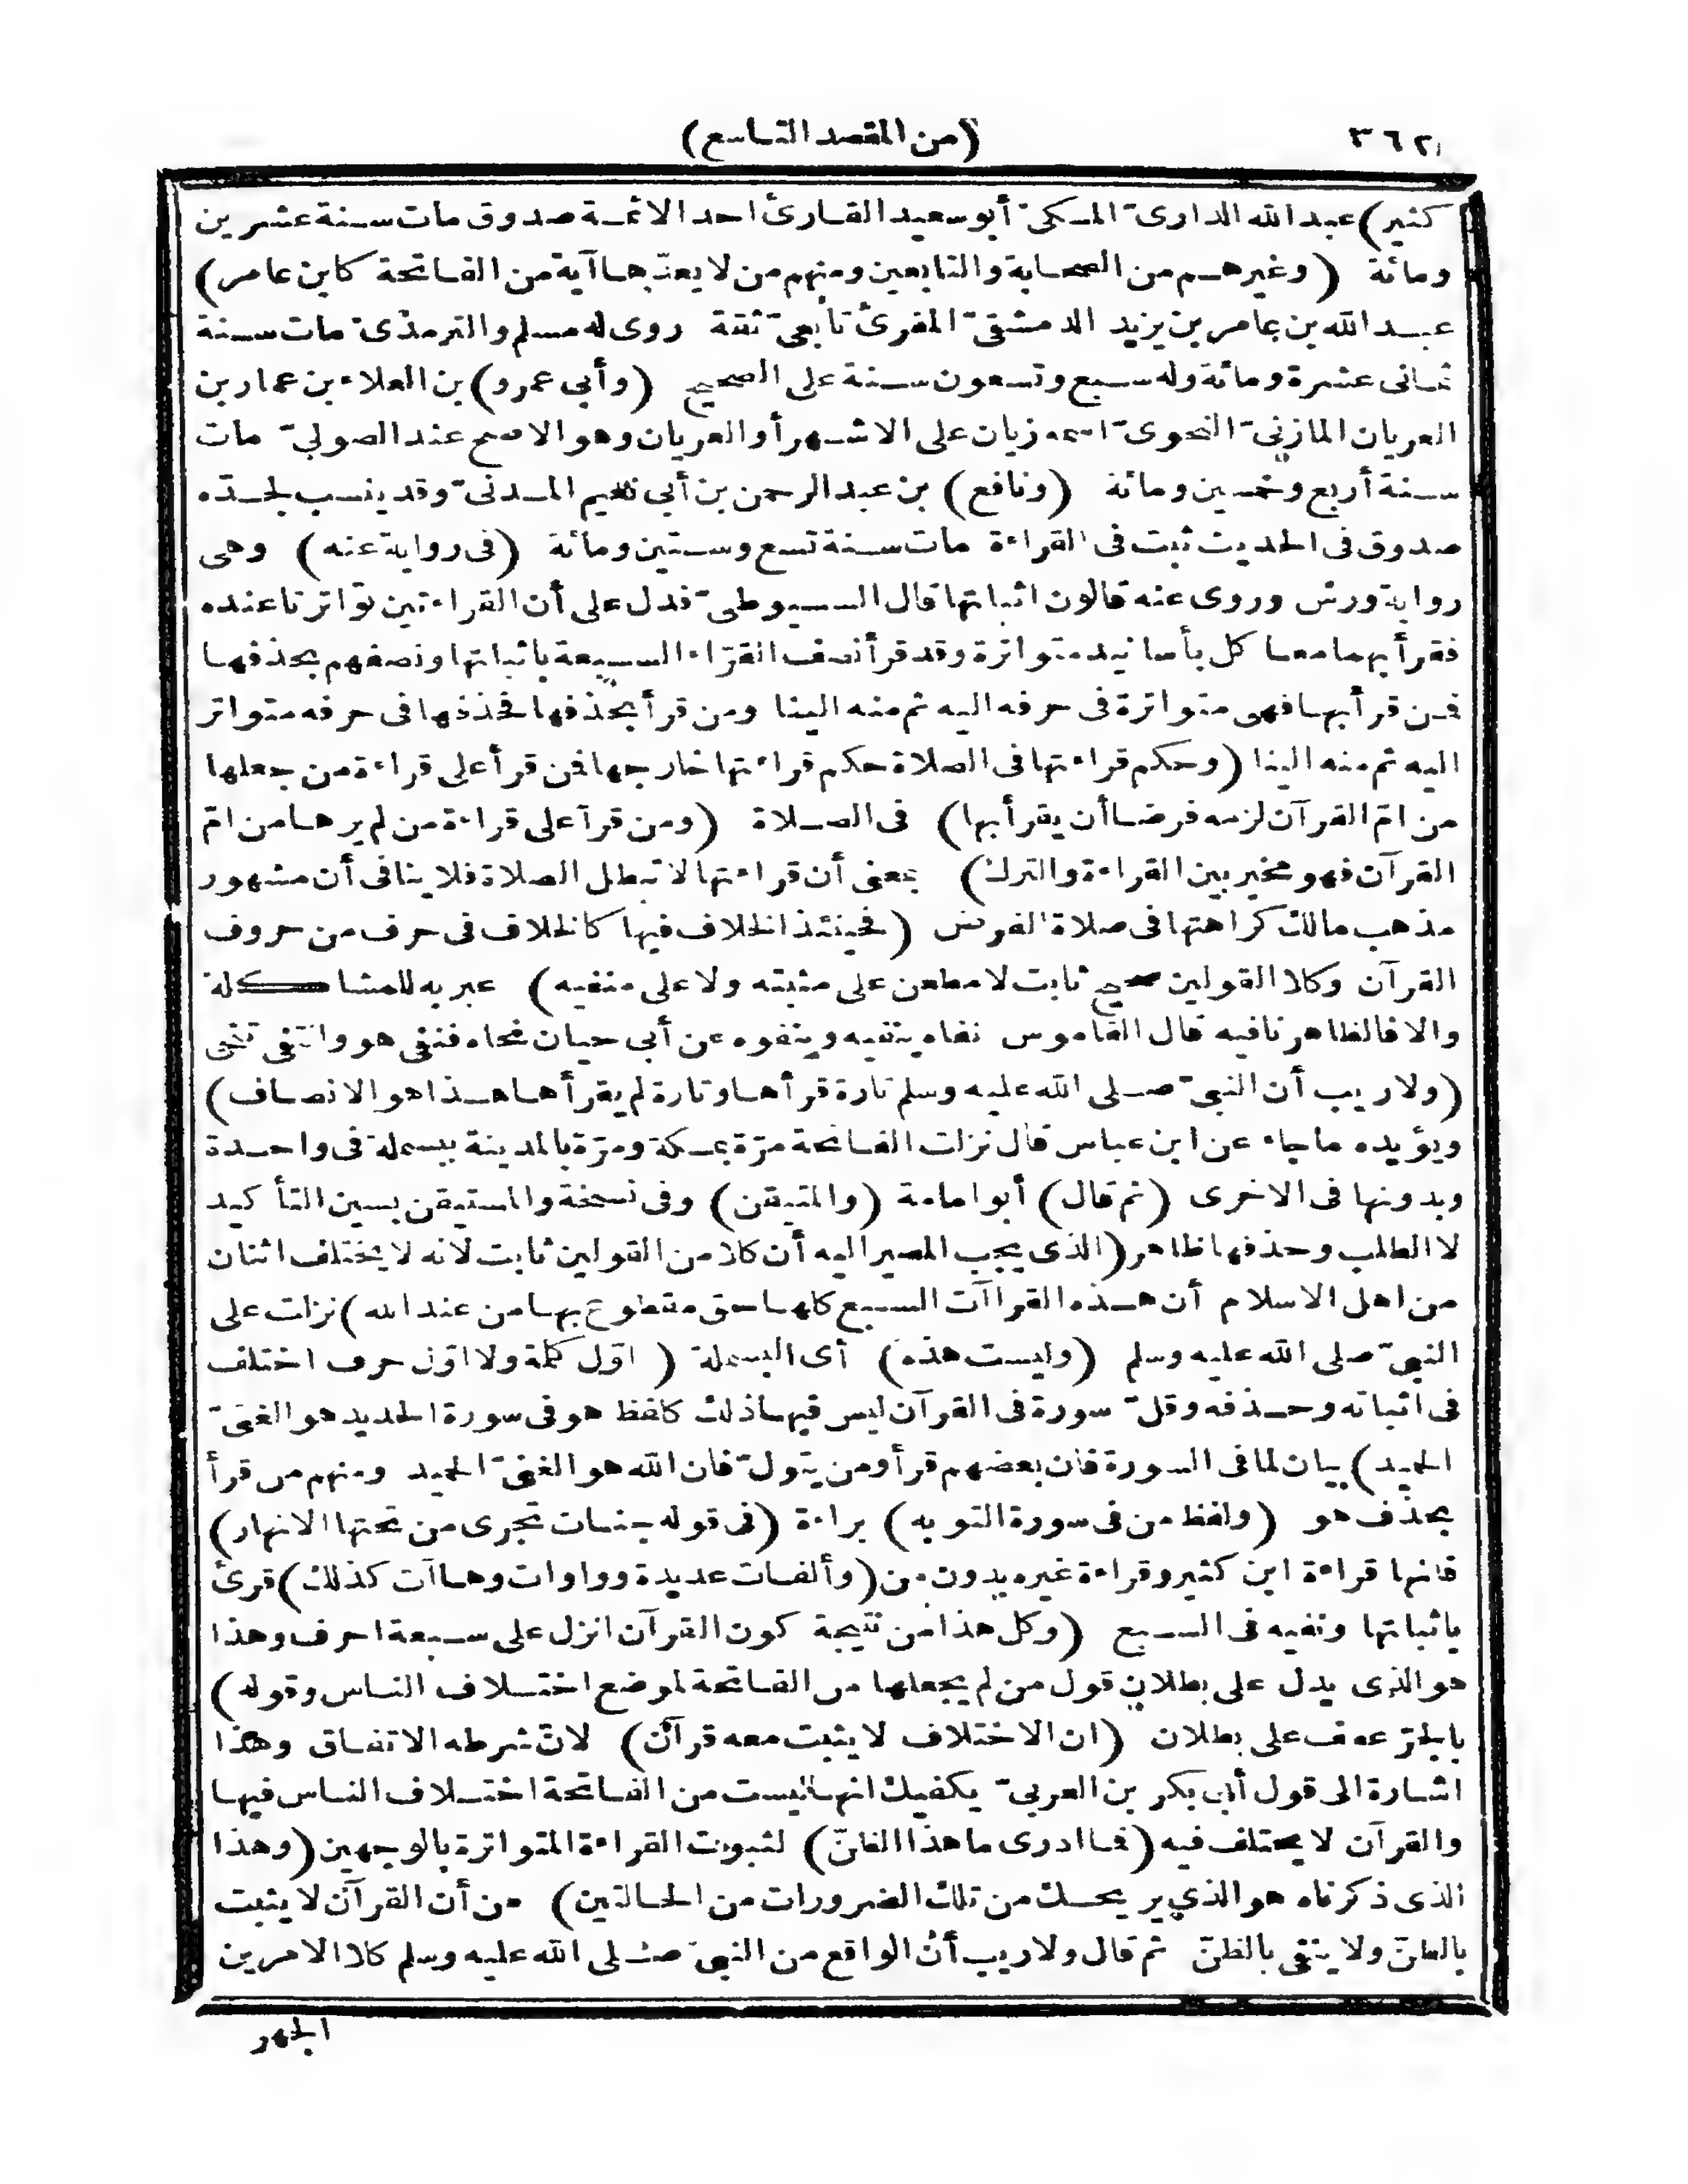 ٣٦٢
(من المقصد التاسع)
كثير) عبد الله الدارىّ المكىّ أبو سعيد القارئ احد الائمة صدوق مات سنة عشرين
ومائة (وغيرهم من الصحابة والتابعين ومنهم من لا يعدّها آية من الفاتحة كابن عامر)
عبد الله بن عامر بن يزيد الدمشقىّ المقرئ تابعىّ ثقة روى له مسلم والترمذىّ مات سنة
ثمانى عشرة ومائة وله سبع وتسعون سنة على الصحيح (وأبى عمرو) بن العلاء بن عمار بن
العريان المازنىّ النحوىّ اسمه زبان على الاشهر أو العريان وهو الاصح عند الصولىّ مات
سنة أربع وخمسين ومائة (ونافع) بن عبد الرحمن بن أبى نعيم المدنىّ وقد ينسب لجدّه
صدوق فى الحديث ثبت فى القراءة مات سنة تسع وستين ومائة (فى رواية عنه) وهى
رواية ورش وروى عنه قالون اثباتها قال السيوطىّ فدل على أن القراءتين تواترتا عنده
فقرأ بهما معا كل بأسانيد متواترة وقد قرأ نصف القرّاء السبعة باثباتها ونصفهم بحذفها
فمن قرأ بها فهى متواترة فى حرفه اليه ثم منه الينا ومن قرأ بحذفها فحذفها فى حرفه متواتر
اليه ثم منه الينا (وحكم قراءتها فى الصلاة حكم قراءتها خارجها فمن قرأ على قراءة من جعلها
من امّ القرآن لزمه فرضا أن يقرأ بها) فى الصلاة (ومن قرأ على قراءة من لم يرها من امّ
القرآن فهو مخير بين القراءة والترك) بمعنى أن قراءتها لا تبطل الصلاة فلا ينافى أن مشهور
مذهب مالك كراهتها فى صلاة الفرض (فحينئذ الخلاف فيها كالخلاف فى حرف من حروف
القرآن وكلا القولين صحيح ثابت لا مطعن على مثبته ولا على منفيه) عبر به للمشاكلة
والا فالظاهر نافيه قال القاموس نفاه ينفيه وينفوه عن أبى حيان نحاه فنفى هو وانتفى تنحى
(ولا ريب أن النبىّ صلى الله عليه وسلم تارة قرأها وتارة لم يقرأها هذا هو الانصاف)
ويؤيده ما جاء عن ابن عباس قال نزلت الفاتحة مرّة بمكة ومرّة بالمدينة ببسملة فى واحدة
وبدونها فى الاخرى (ثم قال) أبو امامة (والمتيقن) وفى نسخة والمستيقن بسين التأكيد
لا الطلب وحذفها ظاهر (الذى يجب المصير اليه أن كلا من القولين ثابت لانه لا يختلف اثنان
من اهل الاسلام أن هذه القراآت السبع كلها حق مقطوع بها من عند الله) نزلت على
النبىّ صلى الله عليه وسلم (وليست هذه) أى البسملة (اوّل كلمة ولا اوّل حرف اختلف
فى اثباته وحذفه وقلّ سورة فى القرآن ليس فيها ذلك كلفظ هو فى سورة الحديد هو الغنىّ
الحميد) بيان لما فى السورة فان بعضهم قرأ ومن يتولّ فان الله هو الغنىّ الحميد ومنهم من قرأ
بحذف هو (ولفظ من فى سورة التوبه) براءة (فى قوله جنات تجرى من تحتها الانهار)
فانها قراءة ابن كثير وقراءة غيره بدون من (وألفات عديدة وواوات وهاآت كذلك) قرئ
باثباتها ونفيه فى السبع (وكل هذا من نتيجة كون القرآن انزل على سبعة احرف وهذا
هو الذى يدل على بطلان قول من لم يجعلها من الفاتحة لموضع اختلاف الناس وقوله)
بالجرّ عطف على بطلان (ان الاختلاف لا يثبت معه قرآن) لانّ شرطه الاتفاق وهذا
اشارة الى قول أبى بكر بن العربىّ يكفيك انها ليست من الفاتحة اختلاف الناس فيها
والقرآن لا يختلف فيه (فما ادرى ما هذا الظنّ) لثبوت القراءة المتواترة بالوجهين (وهذا
الذى ذكرناه هو الذى يريحك من تلك الضرورات من الحالتين) من أن القرآن لا يثبت
بالظنّ ولا ينتفى بالظنّ ثم قال ولا ريب أن الواقع من النبىّ صلى الله عليه وسلم كلا الامرين
الجهر